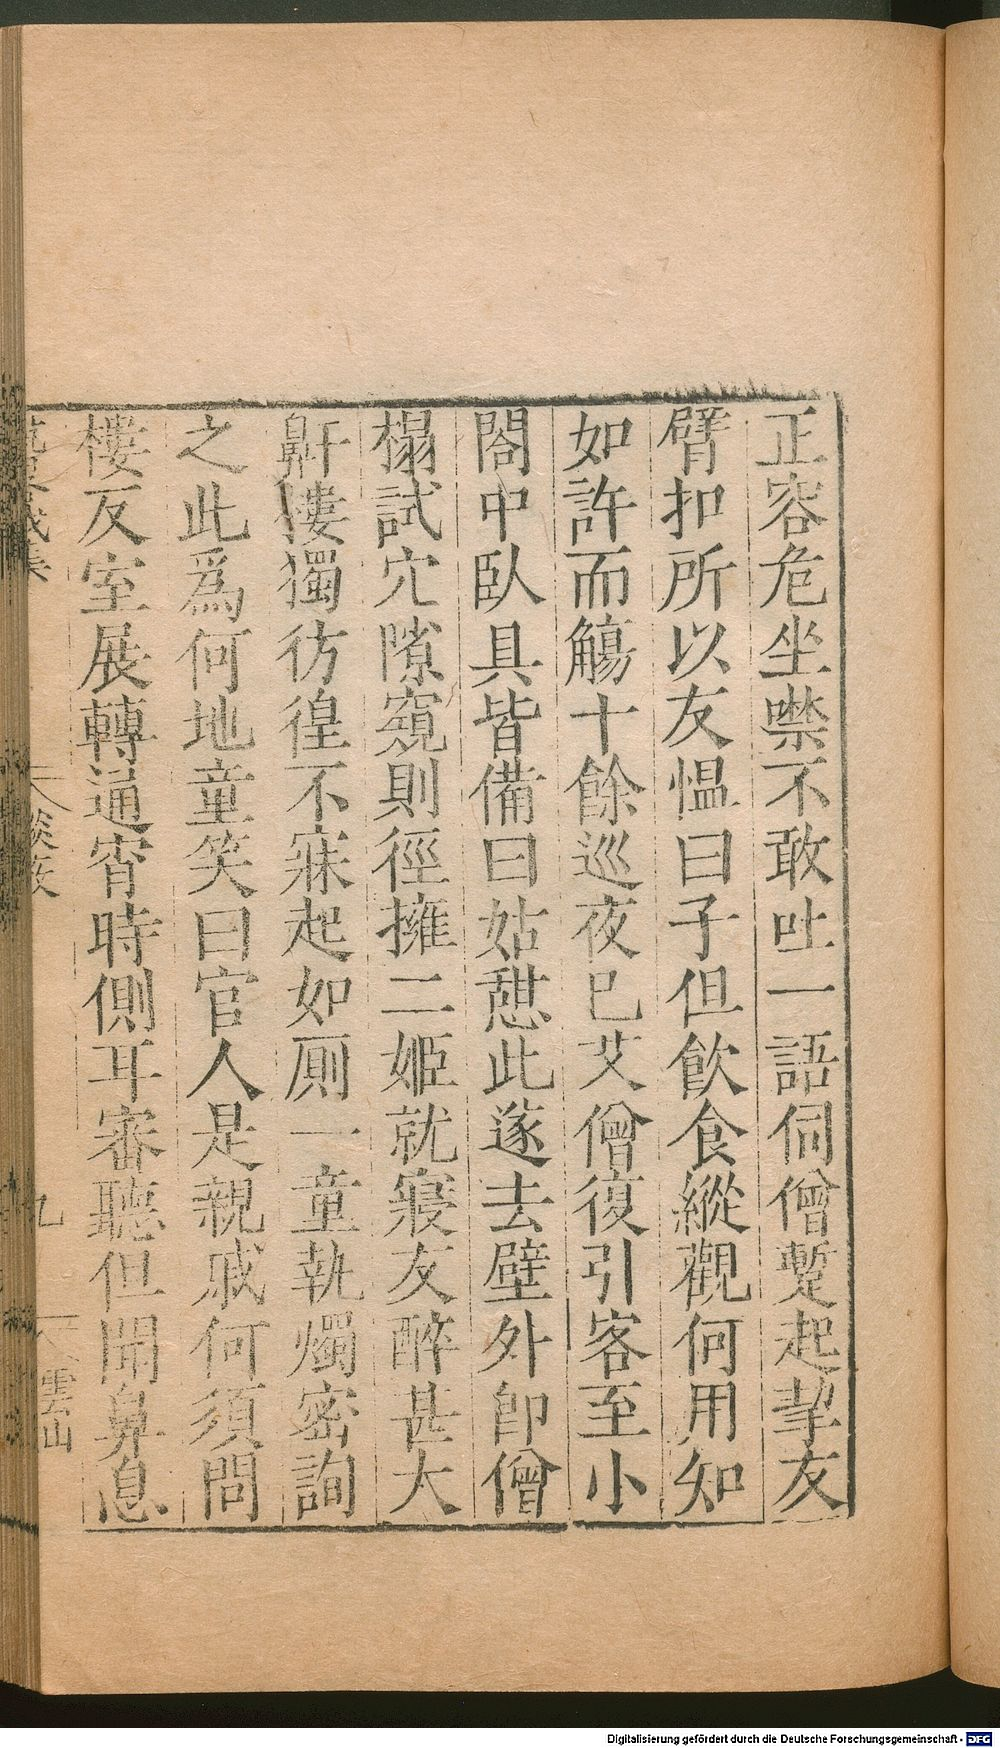 正容危坐噤不敢吐一語伺僧蹔起挈友
臂扣所以友慍曰子但飲食縱觀何用知
如許而觴十餘巡夜巳艾僧復引客至小
閤中臥具皆備曰姑憇此遂去壁外卽僧
榻試穴隙窺則徑擁二姬就寢友醉甚大
鼾僂獨彷徨不寐起如厠一童執燭密詢
之此爲何地童笑曰官人是親戚何須問
樓反室展轉通宵時側耳審聽但聞鼻息
九
雲山
Digitalisierung gefördert durch die Deutsche Forschungsgemeinschaft - DFG